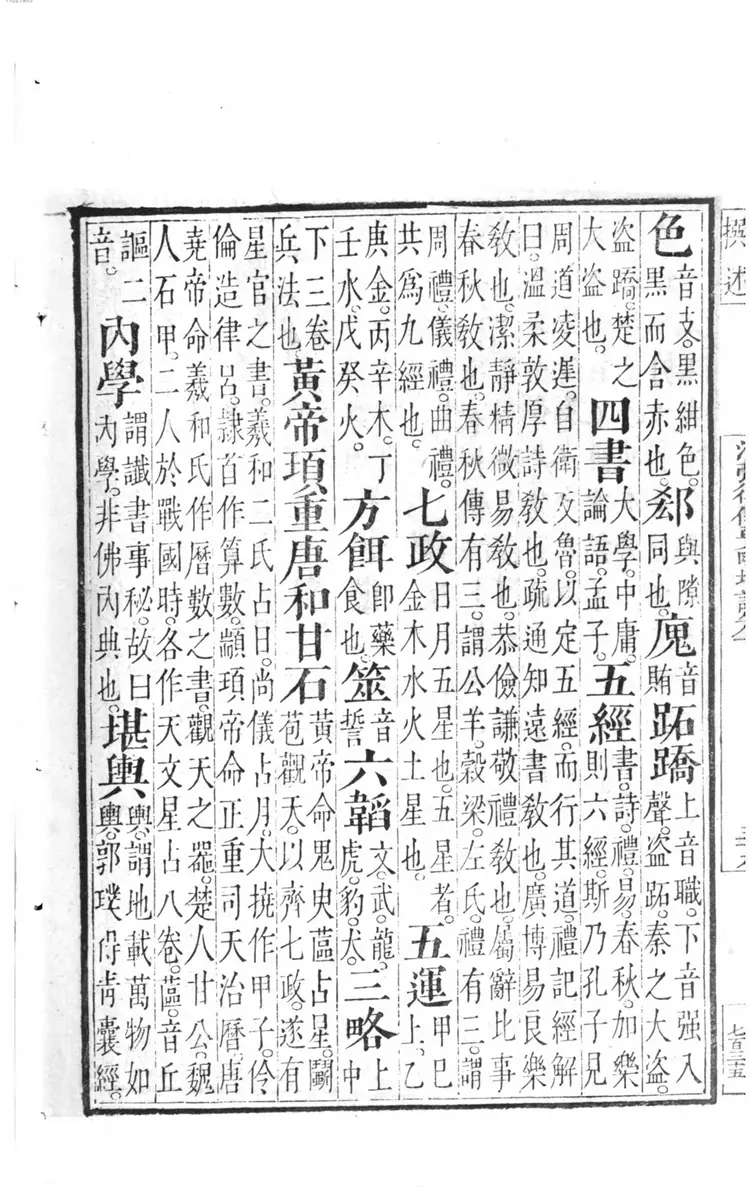 色音支。黑紺色。黑而含赤也。郄與隙同也。廆音賄跖蹻上音職。下音强入聲。盜跖。秦之大盜。
盜蹻。楚之大盜也。四書大學。中庸。論語。孟子。五經書。詩。禮。易。春秋。加樂則六經。斯乃孔子見
周道凌遲。自衛叐魯。以定五經。而行其道。禮記經解
曰。溫柔敦厚詩敎也。疏通知遠書敎也。廣博易良樂
敎也。潔靜精微易敎也。恭儉謙敬禮敎也。屬辭比事
春秋敎也。春秋傳有三。謂公羊。穀梁。左氏。禮有三。謂
周禮。儀禮。曲禮。共爲九經也。七政日月五星也。五星者。金木水火土星也。五運甲巳土。乙
庚金。丙辛木。丁壬水。戊癸火。方餌卽藥食也。筮音誓六韜文。武。龍。虎。豹。犬。三略上中
下三卷兵法也。黃帝頊重唐和甘石黃帝命鬼臾蓲占星。鬭苞觀天。以齊七政。遂有
星官之書。羲和二氏占日。尚儀占月。大撓作甲子。伶
倫造律呂。隸首作算數。顓頊帝命正重司天治曆。唐
堯帝命羲和氏作曆數之書。觀天之器。楚人甘公。魏
人石甲。二人於戰國時。各作天文星占八卷。蓲。音丘
謳二音。內學謂讖書事秘。故曰內學。非佛內典也。堪輿輿。謂地載萬物如輿。郭璞得靑囊經。
撰述